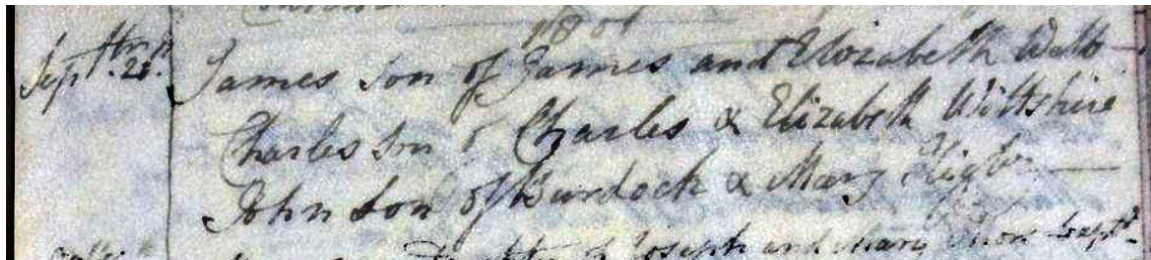 180
Septbr. 20th. James Son of James and Elizabeth Watt
Charles Son of Charles & Elizabeth Wiltshire
John Son of Burdock & Mary
Daughter of Joseph and Mary